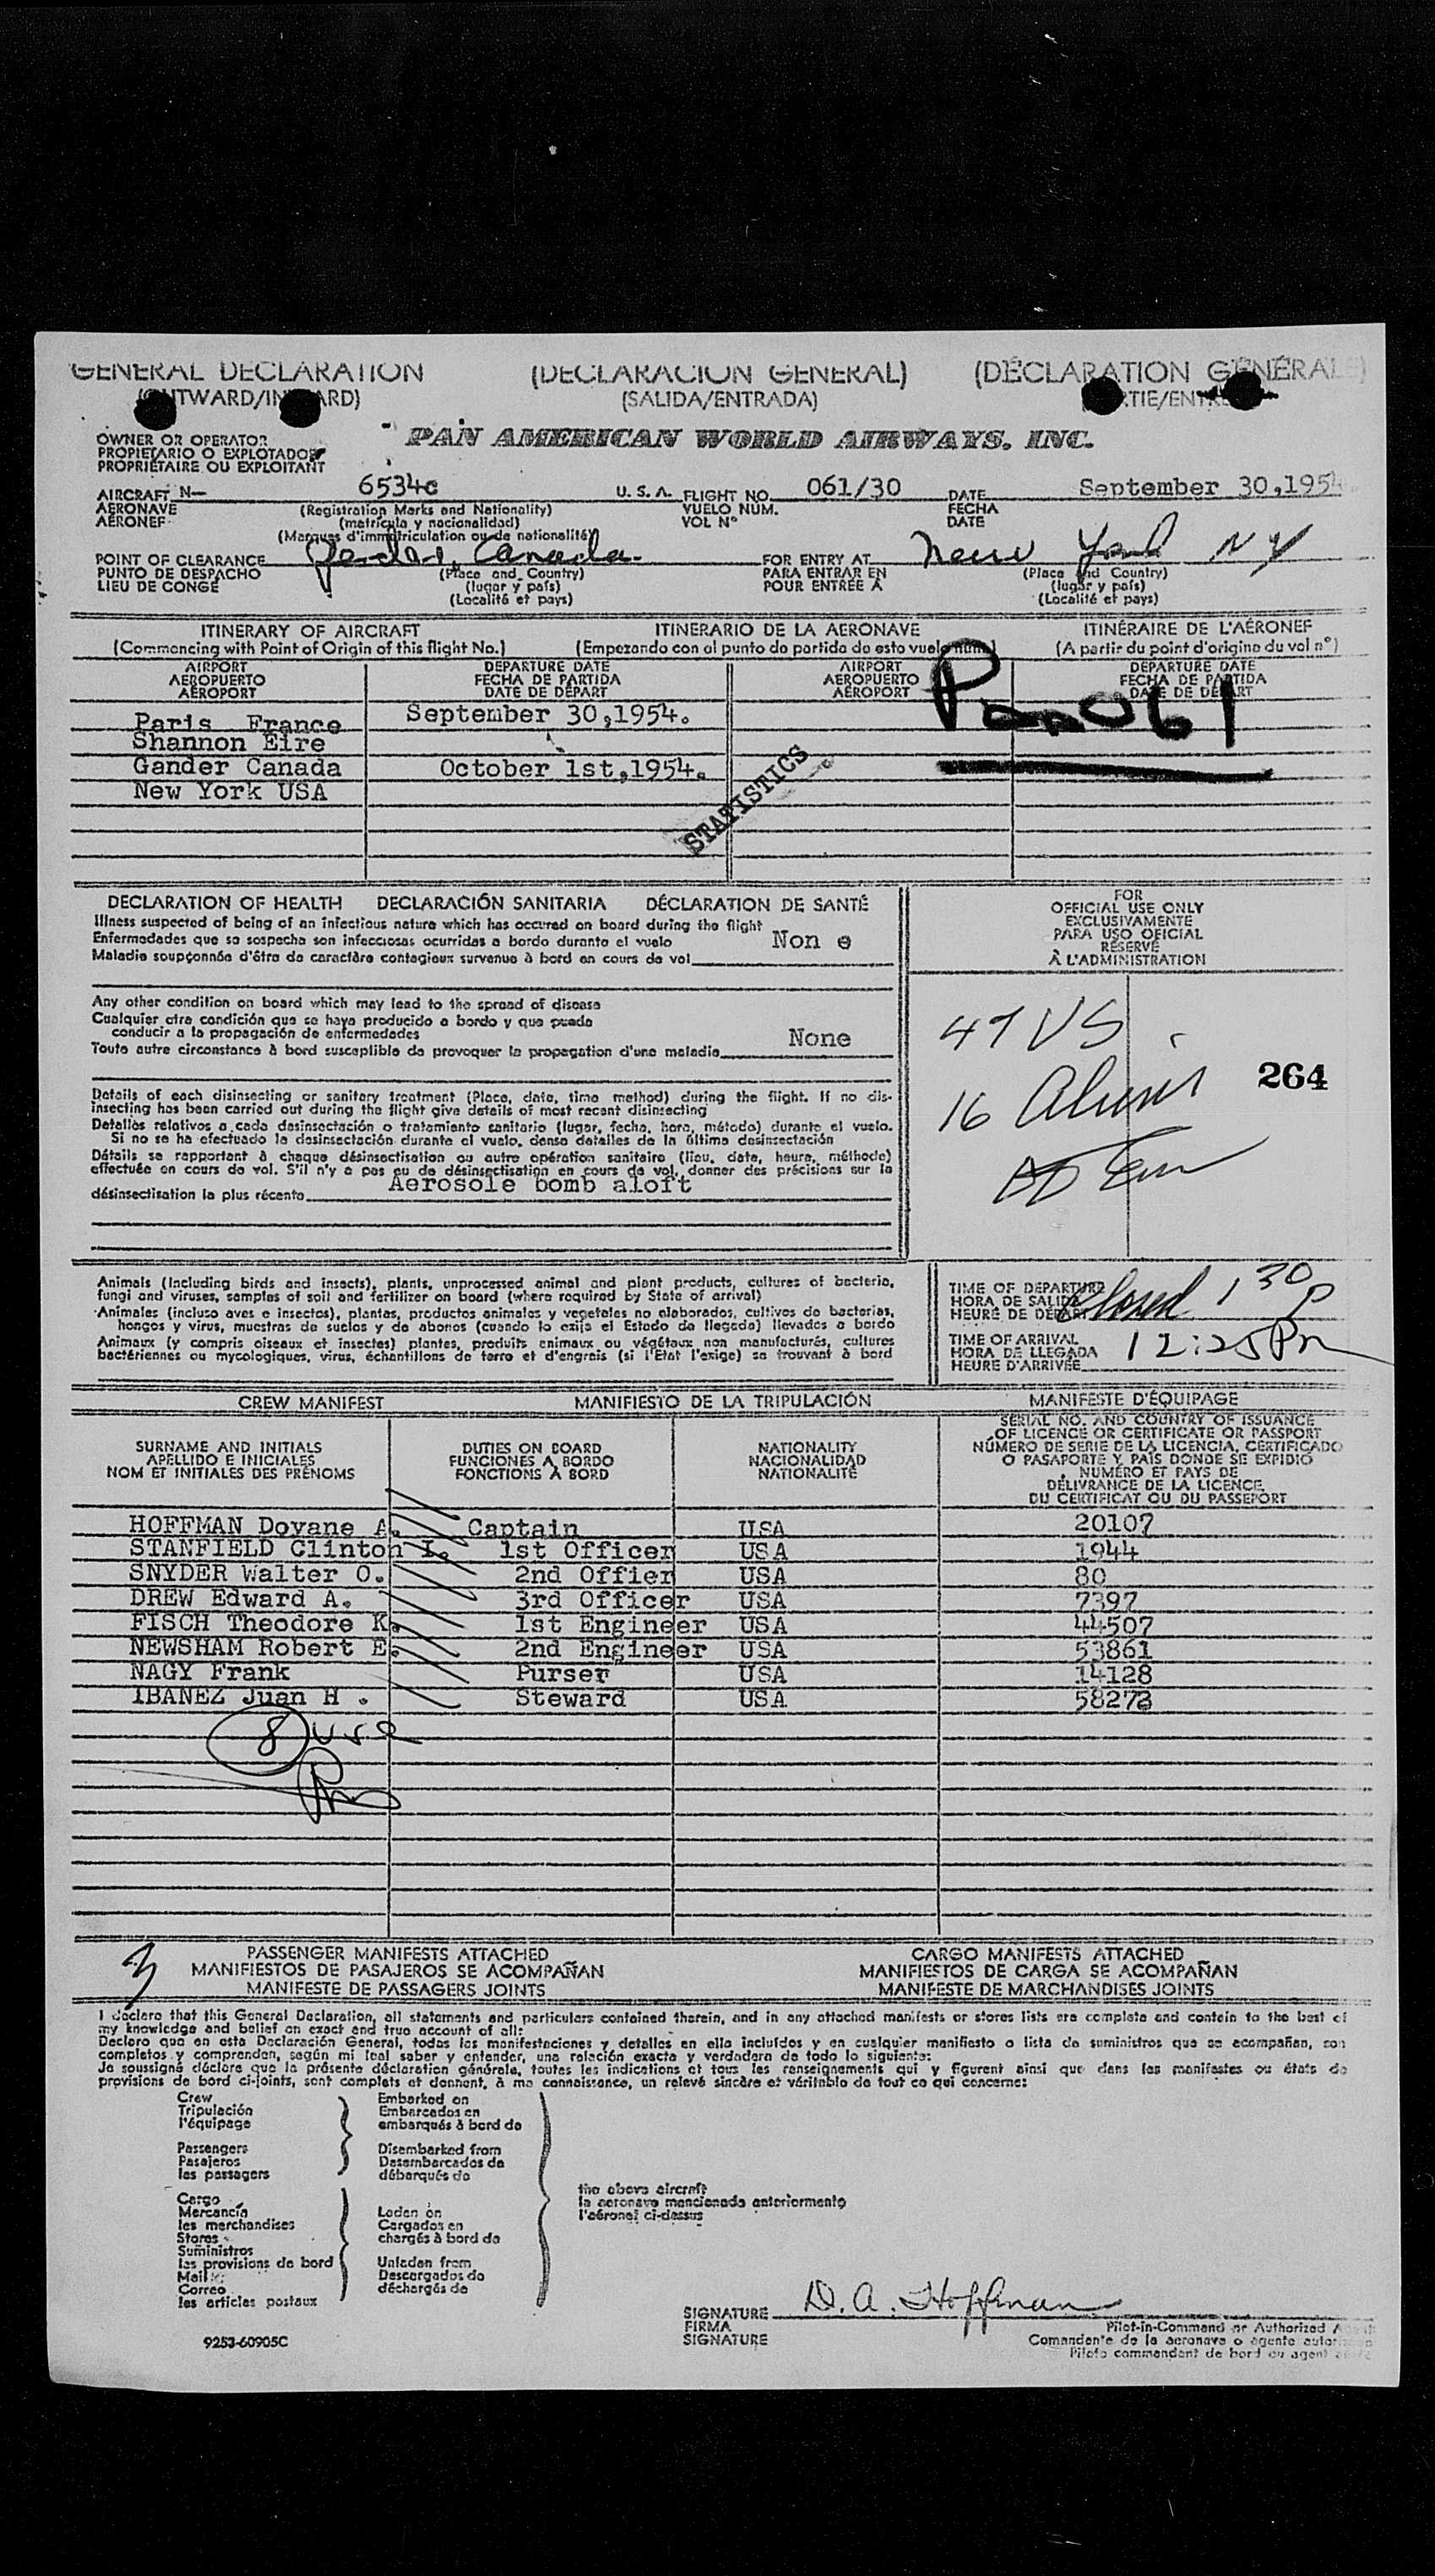 GENERAL DECLARATION (DECLARACION GENERAL) (DÉCLARATION GÉNÉRALE)
(OUTWARD/INWARD) (SALIDA/ENTRADA)
OWNER OR OPERATOR
PROPIETARIO O EXPLOTADOR
PROPRIÉTAIRE OU EXPLOITANT
PAN AMERICAN WORLD AIRWAYS, INC.
AIRCRAFT N— 6534C U. S. A. FLIGHT NO. 061/30 DATE September 30,1954
AERONAVE (Registration Marks and Nationality) VUELO NÚM. FECHA
AÉRONEF (matrícula y nacionalidad) VOL N° DATE
(Marques d'immatriculation ou de nationalité)
POINT OF CLEARANCE Gander, Canada. FOR ENTRY AT New York NY
PUNTO DE DESPACHO (Place and Country) PARA ENTRAR EN (Place and Country)
LIEU DE CONGÉ (lugar y país) POUR ENTRÉE À (lugar y país)
(Localité et pays) (Localité et pays)
ITINERARY OF AIRCRAFT ITINERARIO DE LA AERONAVE ITINÉRAIRE DE L'AÉRONEF
(Commencing with Point of Origin of this flight No.) (Empezando con el punto de partida de este vuelo núm.) (A partir du point d'origine du vol n°)
AIRPORT DEPARTURE DATE AIRPORT DEPARTURE DATE
AEROPUERTO FECHA DE PARTIDA AEROPUERTO FECHA DE PARTIDA
AÉROPORT DATE DE DÉPART AÉROPORT DATE DE DÉPART
Pan 061
Paris France September 30,1954.
Shannon Eire
Gander Canada October 1st,1954.
New York USA
STATISTICS
DECLARATION OF HEALTH DECLARACIÓN SANITARIA DÉCLARATION DE SANTÉ
Illness suspected of being of an infectious nature which has occured on board during the flight
Enfermedades que se sospecha son infecciosas ocurridas a bordo durante el vuelo Non e
Maladie soupçonnée d'être de caractère contagieux survenue à bord en cours de vol
FOR
OFFICIAL USE ONLY
EXCLUSIVAMENTE
PARA USO OFICIAL
RÉSERVÉ
À L'ADMINISTRATION
Any other condition on board which may lead to the spread of disease
Cualquier otra condición que se haya producido a bordo y que pueda
conducir a la propagación de enfermedades None
Toute autre circonstance à bord susceptible de provoquer la propagation d'une maladie
47 US
16 Aliens
264
Details of each disinsecting or sanitary treatment (Place, date, time method) during the flight. If no dis-
insecting has been carried out during the flight give details of most recent disinsecting
Detalles relativos a cada desinsectación o tratamiento sanitario (lugar, fecha, hora, método) durante el vuelo.
Si no se ha efectuado la desinsectación durante el vuelo, dense detalles de la última desinsectación
Détails se rapportant à chaque désinsectisation ou autre opération sanitaire (lieu, date, heure, méthode)
effectuée en cours de vol. S'il n'y a pas eu de désinsectisation en cours de vol, donner des précisions sur la
désinsectisation la plus récente Aerosole bomb aloft
Animals (Including birds and insects), plants, unprocessed animal and plant products, cultures of bacteria,
fungi and viruses, samples of soil and fertilizer on board (where required by State of arrival)
Animales (incluso aves e insectos), plantas, productos animales y vegetales no elaborados, cultivos de bacterias,
hongos y virus, muestras de suelos y de abonos (cuando lo exija el Estado de llegada) llevados a bordo
Animaux (y compris oiseaux et insectes) plantes, produits animaux ou végétaux non manufacturés, cultures
bactériennes ou mycologiques, virus, échantillons de terre et d'engrais (si l'État l'exige) se trouvant à bord
TIME OF DEPARTURE
HORA DE SALIDA
HEURE DE DÉPART
1 30 P
TIME OF ARRIVAL
HORA DE LLEGADA 12:25 Pm
HEURE D'ARRIVÉE
CREW MANIFEST MANIFIESTO DE LA TRIPULACIÓN MANIFESTE D'ÉQUIPAGE
SURNAME AND INITIALS
APELLIDO E INICIALES
NOM ET INITIALES DES PRÉNOMS
DUTIES ON BOARD
FUNCIONES A BORDO
FONCTIONS À BORD
NATIONALITY
NACIONALIDAD
NATIONALITÉ
SERIAL NO. AND COUNTRY OF ISSUANCE
OF LICENCE OR CERTIFICATE OR PASSPORT
NÚMERO DE SERIE DE LA LICENCIA, CERTIFICADO
O PASAPORTE Y PAÍS DONDE SE EXPIDIÓ
NUMÉRO ET PAYS DE
DÉLIVRANCE DE LA LICENCE
DU CERTIFICAT OU DU PASSEPORT
HOFFMAN Dovane A. Captain USA 20107
STANFIELD Clinton I. 1st Officer USA 1944
SNYDER Walter O. 2nd Offier USA 80
DREW Edward A. 3rd Officer USA 7397
FISCH Theodore K. 1st Engineer USA 44507
NEWSHAM Robert E. 2nd Engineer USA 53861
NAGY Frank Purser USA 14128
IBANEZ Juan H . Steward USA 58273
8 USA
3
PASSENGER MANIFESTS ATTACHED CARGO MANIFESTS ATTACHED
MANIFIESTOS DE PASAJEROS SE ACOMPAÑAN MANIFIESTOS DE CARGA SE ACOMPAÑAN
MANIFESTE DE PASSAGERS JOINTS MANIFESTE DE MARCHANDISES JOINTS
I declare that this General Declaration, all statements and particulars contained therein, and in any attached manifests or stores lists are complete and contain to the best of
my knowledge and belief an exact and true account of all:
Declaro que en esta Declaración General, todas las manifestaciones y detalles en ella incluídos y en cualquier manifiesto o lista de suministros que se acompañan, son
completos y comprenden, según mi leal saber y entender, una relación exacta y verdadera de todo lo siguiente:
Je soussigné déclare que la présente déclaration générale, toutes les indications et tous les renseignements qui y figurent ainsi que dans les manifestes ou états de
provisions de bord ci-joints, sont complets et donnent, à ma connaissance, un relevé sincère et véritable de tout ce qui concerne:
Crew Embarked on
Tripulación Embarcados en
l'équipage embarqués à bord de
Passengers Disembarked from
Pasajeros Desembarcados de
les passagers débarqués de
the above aircraft
la aeronave mencionada anteriormente
l'aéronef ci-dessus
Cargo
Mercancía Laden on
les merchandises Cargados en
Stores chargés à bord de
Suministros
les provisions de bord Unladen from
Mail Descargados de
Correo déchargés de
les articles postaux
SIGNATURE D. A. Hoffman
FIRMA Pilot-in-Command or Authorized
SIGNATURE Comandante de la aeronave o agente
Pilote commandant de bord ou agent
9253-60905C